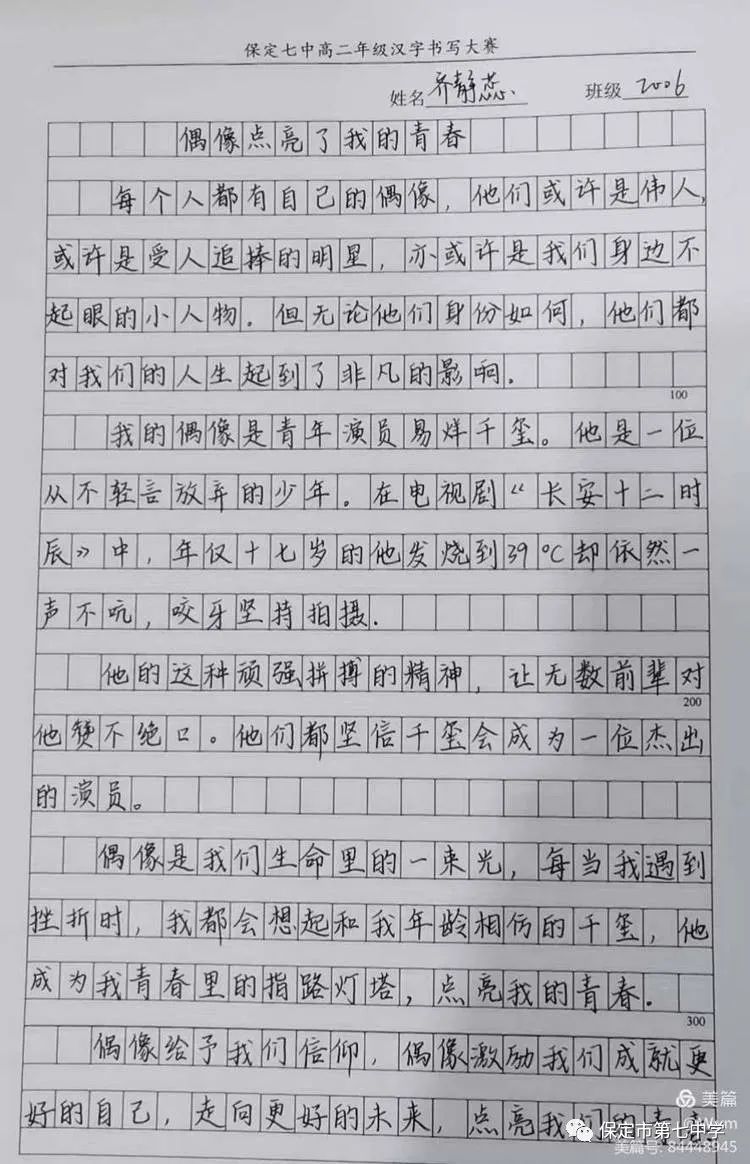 保定七中高二年级汉字书写大赛
姓名 齐静蕊 班级 2006
偶像点亮了我的青春
每个人都有自己的偶像，他们或许是伟人，
或许是受人追捧的明星，亦或许是我们身边不
起眼的小人物。但无论他们身份如何，他们都
对我们的人生起到了非凡的影响。
100
我的偶像是青年演员易烊千玺。他是一位
从不轻言放弃的少年。在电视剧《长安十二时
辰》中，年仅十七岁的他发烧到39℃却依然一
声不吭，咬牙坚持拍摄.
他的这种顽强拼搏的精神，让无数前辈对
200
他赞不绝口。他们都坚信千玺会成为一位杰出
的演员。
偶像是我们生命里的一束光，每当我遇到
挫折时，我都会想起和我年龄相仿的千玺，他
成为我青春里的指路灯塔，点亮我的青春.
300
偶像给予我们信仰，偶像激励我们成就更
好的自己，走向更好的未来，点亮我们的青春
美篇
保定市第七中学
美篇号: 84448945